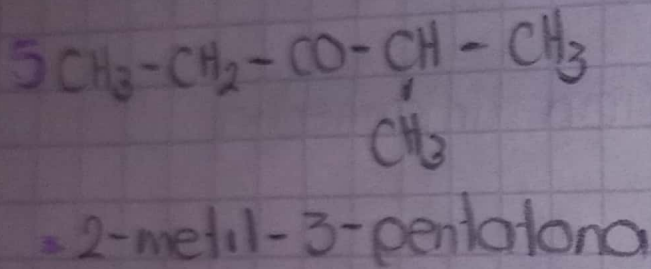 5 CH₃-CH₂-CO-CH-CH₃
CH₃
2-metil-3-pentatona